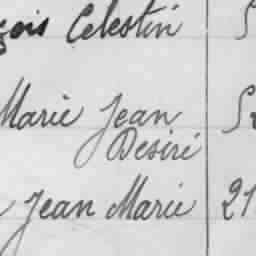 çois Celestin
Marie Jean
Desiré
Jean Marie 21